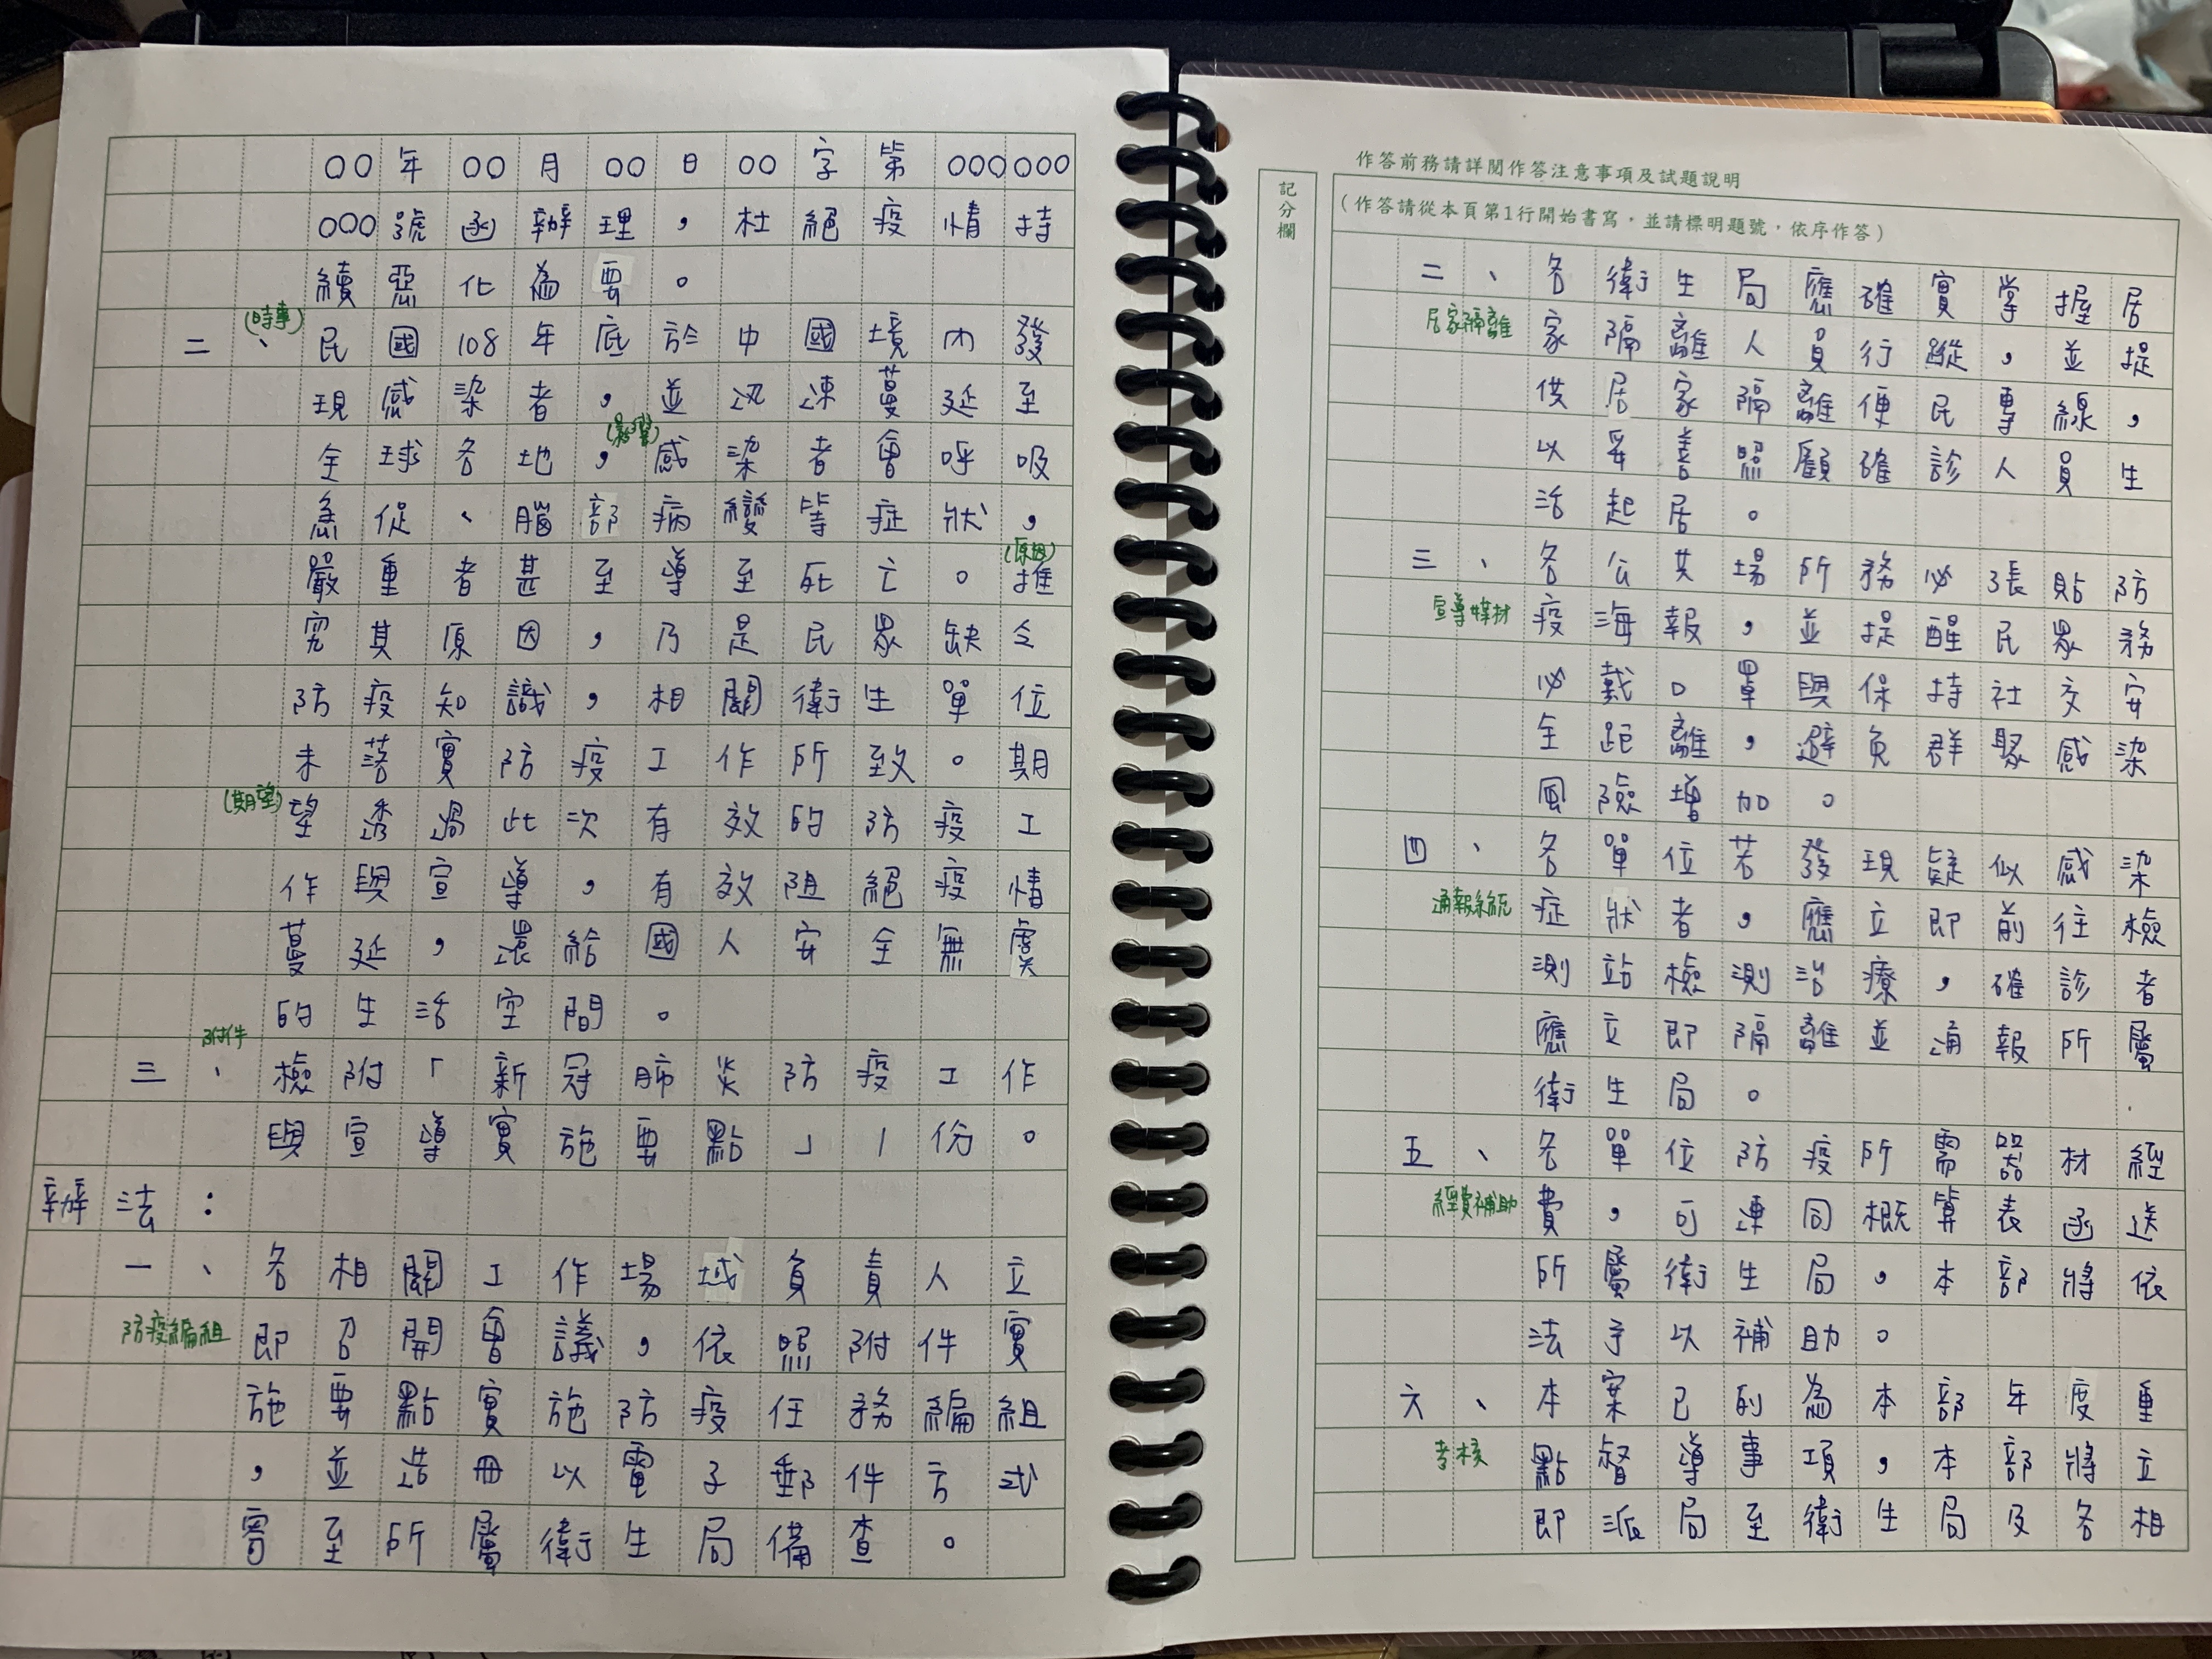 ○○年○○月○○日○○字第○○○○○○
○○○號函辦理，杜絕疫情持
續惡化為要。
(時事)
二、民國108年底於中國境內發
現感染者，並迅速蔓延至
(影響)
全球各地，感染者會呼吸
急促、腦部病變等症狀，
(原因)
嚴重者甚至導至死亡。推
究其原因，乃是民眾缺乏
防疫知識，相關衛生單位
未落實防疫工作所致。期
(期望)
望透過此次有效的防疫工
作與宣導，有效阻絕疫情
蔓延，還給國人安全無虞
的生活空間。
附件
三、檢附「新冠肺炎防疫工作
與宣導實施要點」1份。
辦法：
一、各相關工作場域負責人立
防疫編組
即召開會議，依照附件實
施要點實施防疫任務編組
，並造冊以電子郵件方式
寄至所屬衛生局備查。
作答前務請詳閱作答注意事項及試題說明
記分欄
(作答請從本頁第1行開始書寫，並請標明題號，依序作答)
二、各衛生局應確實掌握居
居家隔離
家隔離人員行蹤，並提
供居家隔離便民專線，
以妥善照顧確診人員生
活起居。
三、各公共場所務必張貼防
宣導媒材
疫海報，並提醒民眾務
必戴口罩與保持社交安
全距離，避免群聚感染
風險增加。
四、各單位若發現疑似感染
通報系統
症狀者，應立即前往檢
測站檢測治療，確診者
應立即隔離並通報所屬
衛生局。
五、各單位防疫所需器材經
經費補助
費，可連同概算表函送
所屬衛生局，本部將依
法予以補助。
六、本案已列為本部年度重
考核
點督導事項，本部將立
即派局至衛生局及各相